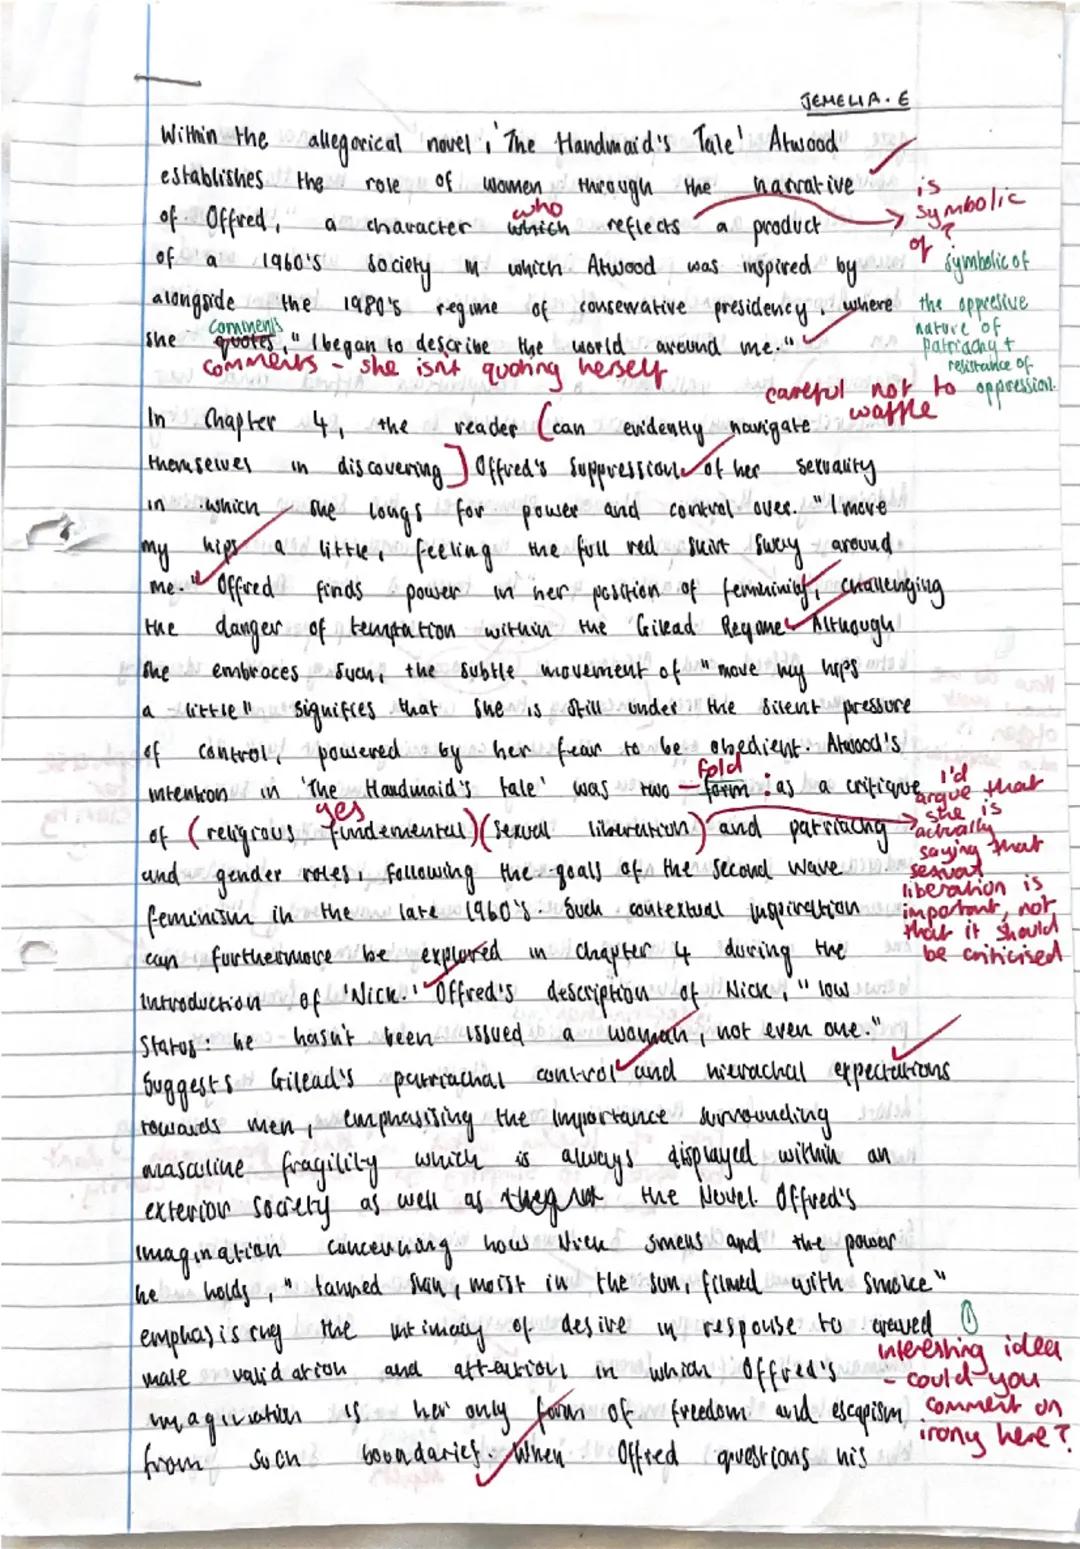 JEMELIA. E
Within the allegorical novel, 'The Handmaid's Tale' Atwood
establishes the role of women through the narrative
is
who
symbolic
of Offred, a character which reflects a product
?
of
of a 1960's society in which Atwood was inspired by
symbolic of
alongside the 1980's regime of conservative presidency, where
the oppresive
comments
nature of
she quotes, "I began to describe the world around me."
patriachy +
resistance of
comments - she isn't quoting herself
oppression.
careful not to
waffle
In Chapter 4, the reader (can evidently navigate
themselves in discovering] Offred's suppression of her sexuality
in which she longs for power and control over. "I move
my hips a little, feeling the full red skirt sway around
me." Offred finds power in her position of femininity, challenging
the danger of temptation within the Gilead Regime. Although
she embraces such, the subtle movement of "move my hips
a little" signifies that she is still under the silent pressure
of control, powered by her fear to be obedient. Atwood's
fold
intention in 'The Handmaid's tale' was two - form : as a critique
yes
of (religious fundemental) (sexual liberation) and patriachy
I'd
argue that
she is
actually
saying that
sexual
liberation is
important, not
that it should
be criticised
and gender roles, following the goals of the second wave
feminism in the late 1960's. Such contextual inspiration
can furthermore be explored in Chapter 4 during the
introduction of 'Nick.' Offred's description of Nick, "low
status: he hasn't been issued a woman, not even one."
Suggests Gilead's patriachal control and hierachal expectations
towards men, emphasising the importance surrounding
masculine fragility which is always displayed within an
exterior society as well as the Novel. Offred's
imagination concerning how Nick smells and the power
he holds, "tanned skin, moist in the sun, filmed with smoke"
emphasising the intimacy of desire in response to craved
male validation and attention in which Offred's
imagination is her only form of freedom and escapism
from such boundaries. When Offred questions his
interesting idea
- could you
comment on
irony here?